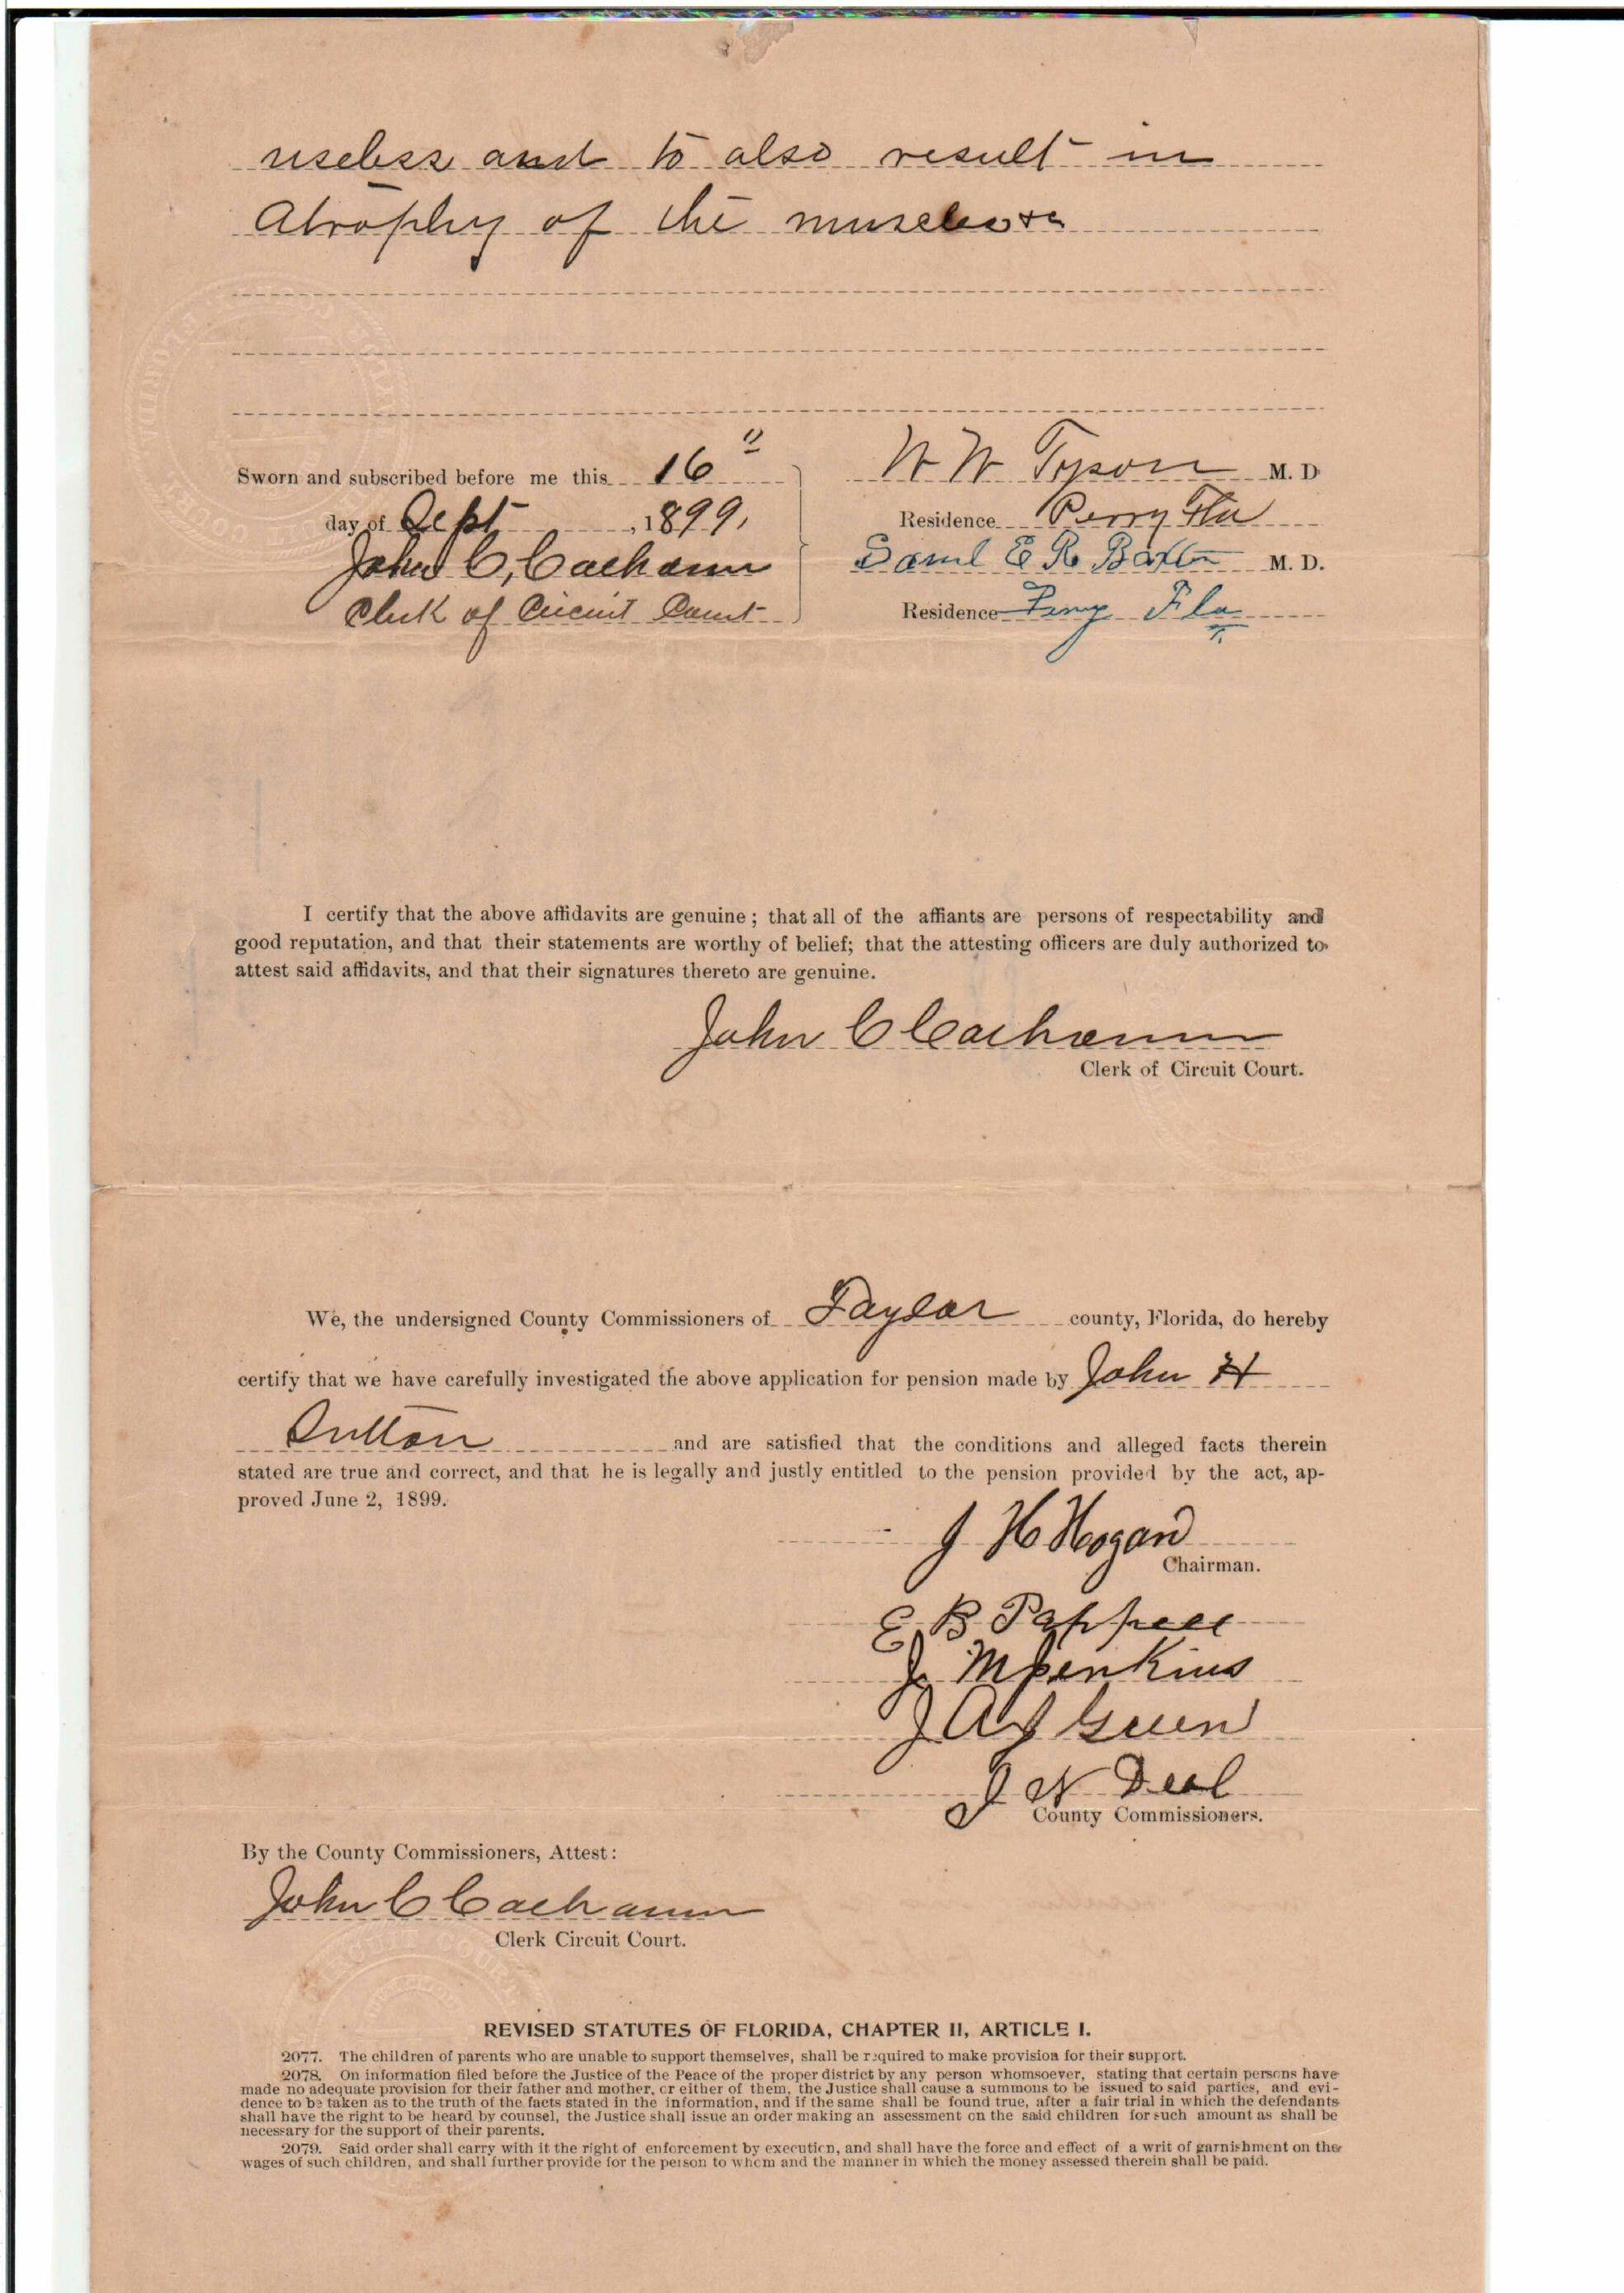 useless and to also result in
Atrophy of the muscles
Sworn and subscribed before me this 16"
day of Sept, 1899,
John C, Calhoun
Clerk of Circuit Court
W W Tyson M. D
Residence Perry Fla
Saml E R Baxter M. D.
Residence Perry Fla
I certify that the above affidavits are genuine; that all of the affiants are persons of respectability and
good reputation, and that their statements are worthy of belief; that the attesting officers are duly authorized to
attest said affidavits, and that their signatures thereto are genuine.
John C Calhoun
Clerk of Circuit Court.
We, the undersigned County Commissioners of Taylor county, Florida, do hereby
certify that we have carefully investigated the above application for pension made by John H
Sutton and are satisfied that the conditions and alleged facts therein
stated are true and correct, and that he is legally and justly entitled to the pension provided by the act, ap-
proved June 2, 1899.
J H Hogan
Chairman.
E B Pappell
J M Jenkins
J A J Green
J N Deal
County Commissioners.
By the County Commissioners, Attest:
John C Calhoun
Clerk Circuit Court.
REVISED STATUTES OF FLORIDA, CHAPTER II, ARTICLE I.
2077. The children of parents who are unable to support themselves, shall be required to make provision for their support.
2078. On information filed before the Justice of the Peace of the proper district by any person whomsoever, stating that certain persons have
made no adequate provision for their father and mother, or either of them, the Justice shall cause a summons to be issued to said parties, and evi-
dence to be taken as to the truth of the facts stated in the information, and if the same shall be found true, after a fair trial in which the defendants
shall have the right to be heard by counsel, the Justice shall issue an order making an assessment on the said children for such amount as shall be
necessary for the support of their parents.
2079. Said order shall carry with it the right of enforcement by execution, and shall have the force and effect of a writ of garnishment on the
wages of such children, and shall further provide for the person to whom and the manner in which the money assessed therein shall be paid.